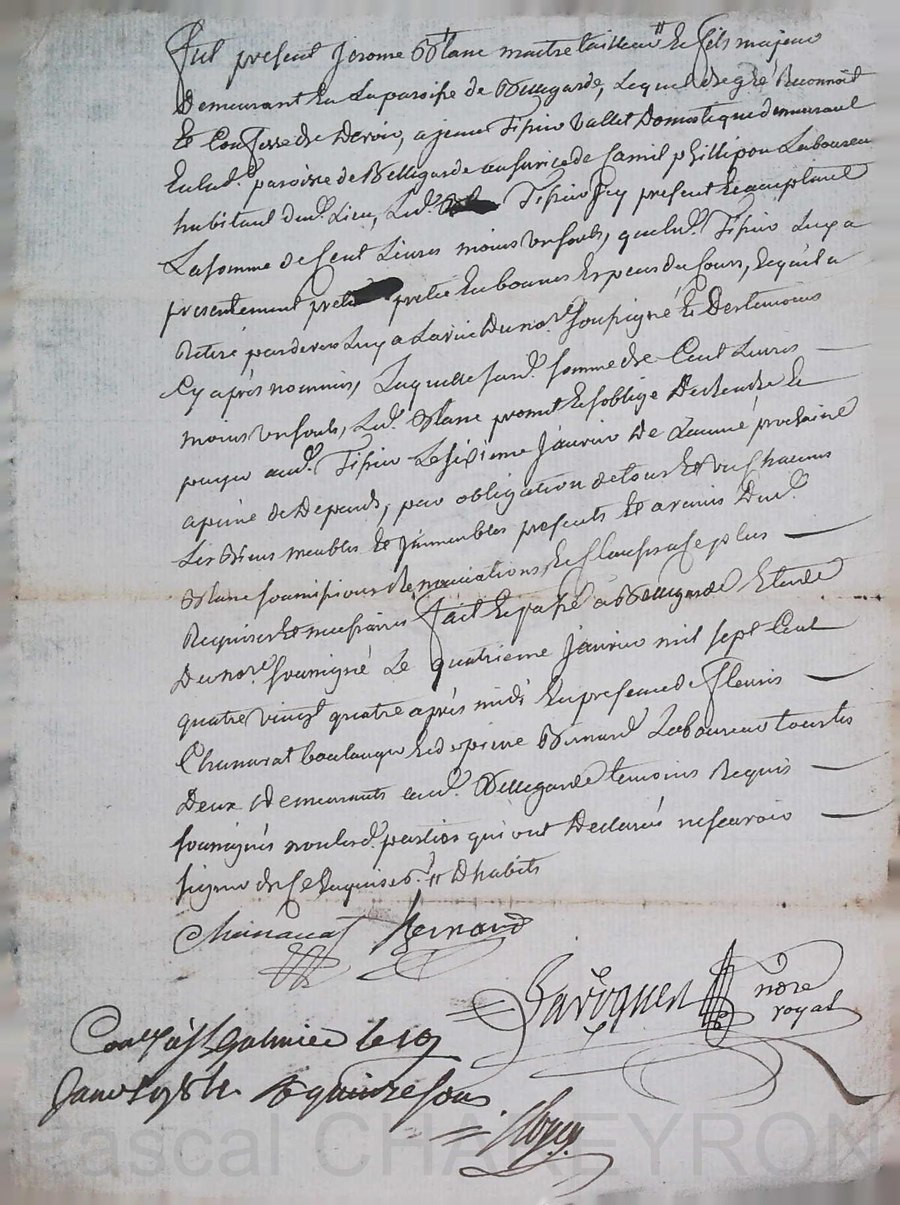 Fut present Jerome Blanc maitre tailleur // et fils majeur
Demeurant en La paroisse de Bellegarde, Lequel de gré Reconnoit
Et Confesse de Devoir, a jean Tissier Vallet Domestique demeurant
En lad.e paroisse de Bellegarde au service de Camil phillipon Laboureur
habitant dud. Lieu, Led. Tissier Icy present et acceptant
La somme de Cent Livres moins un souls, que led. Tissier Luy a
presentement preté en bonnes Especes du Cours, Lequel a
Retiré pardevers Luy a La vue du no.re soussigné Et Des temoins
Cy après nommés, Laquelle susd. somme de Cent Livres
moins un souls, Led. Blanc promet et s'oblige De Rendre Et
payer aud. Tissier Le sixieme Janvier De L'année prochaine
a peine de Depends, par obligation de tous Et un Chacuns
Les Biens meubles Et Immeubles presents Et avenir Dud.
Blanc soumissions Renonciations, Et Clauses a ce plus
Requises Et necessaires fait et passé a Bellegarde Etude
Du no.re soussigné Le quatrieme Janvier mil sept Cent
quatre vingt quatre après midi En presence de fleuris
Chanavat boulanger et de pierre Bernard Laboureur tous les
Deux Demeurants aud. Bellegarde temoins Requis
soussignés non lesd. parties qui ont Declarés ne scavoir
signer de Ce Enquises // D'habits
Chanavat Bernard
Baroquen nore
royal
Con.lé à St Galmier le 19
Janv 1784 R quinze sous